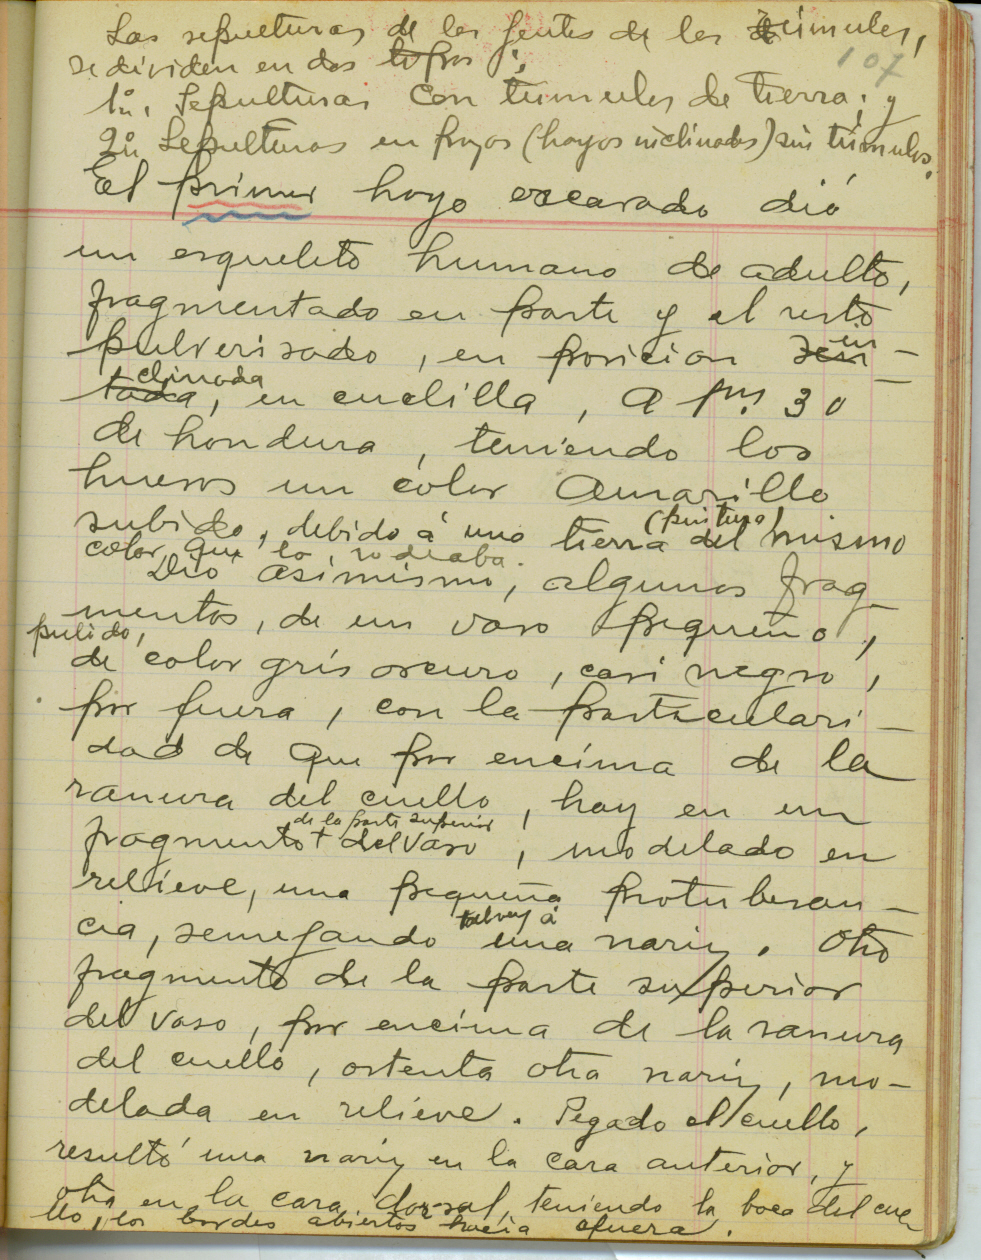 Las sepulturas de las gentes de los túmulos,
107
se dividen en dos tipos:
1º. Sepulturas con túmulos de tierra; y
2º Sepulturas en pozos (hoyos inclinados) sin túmulos.
El primer hoyo excavado dió
un esqueleto humano de adulto,
fragmentado en parte y el resto
pulverisado, en posicion sen in-
tada clinada, en cuclilla, a pms 30
de hondura, teniendo los
huesos un color amarillo
subido, debido á una tierra (pintura) del mismo
color, que lo rodeaba.
Dió asimismo, algunos frag-
mentos, de un vaso pequeño,
pulido,
de color gris oscuro, casi negro,
por fuera, con la particulari-
dad de que por encima de la
ranura del cuello, hay en un
fragmento + de la parte superior del vaso, modelado en
relieve, una pequeña protuberan-
cia, semejando talvez á una nariz. Otro
fragmento de la parte superior
del vaso, por encima de la ranura
del cuello, ostenta otra nariz, mo-
delada en relieve. Pegado el cuello,
resultó una nariz en la cara anterior, y
otra en la cara dorsal, teniendo la boca del cue
llo, los bordes abiertos hacia afuera.